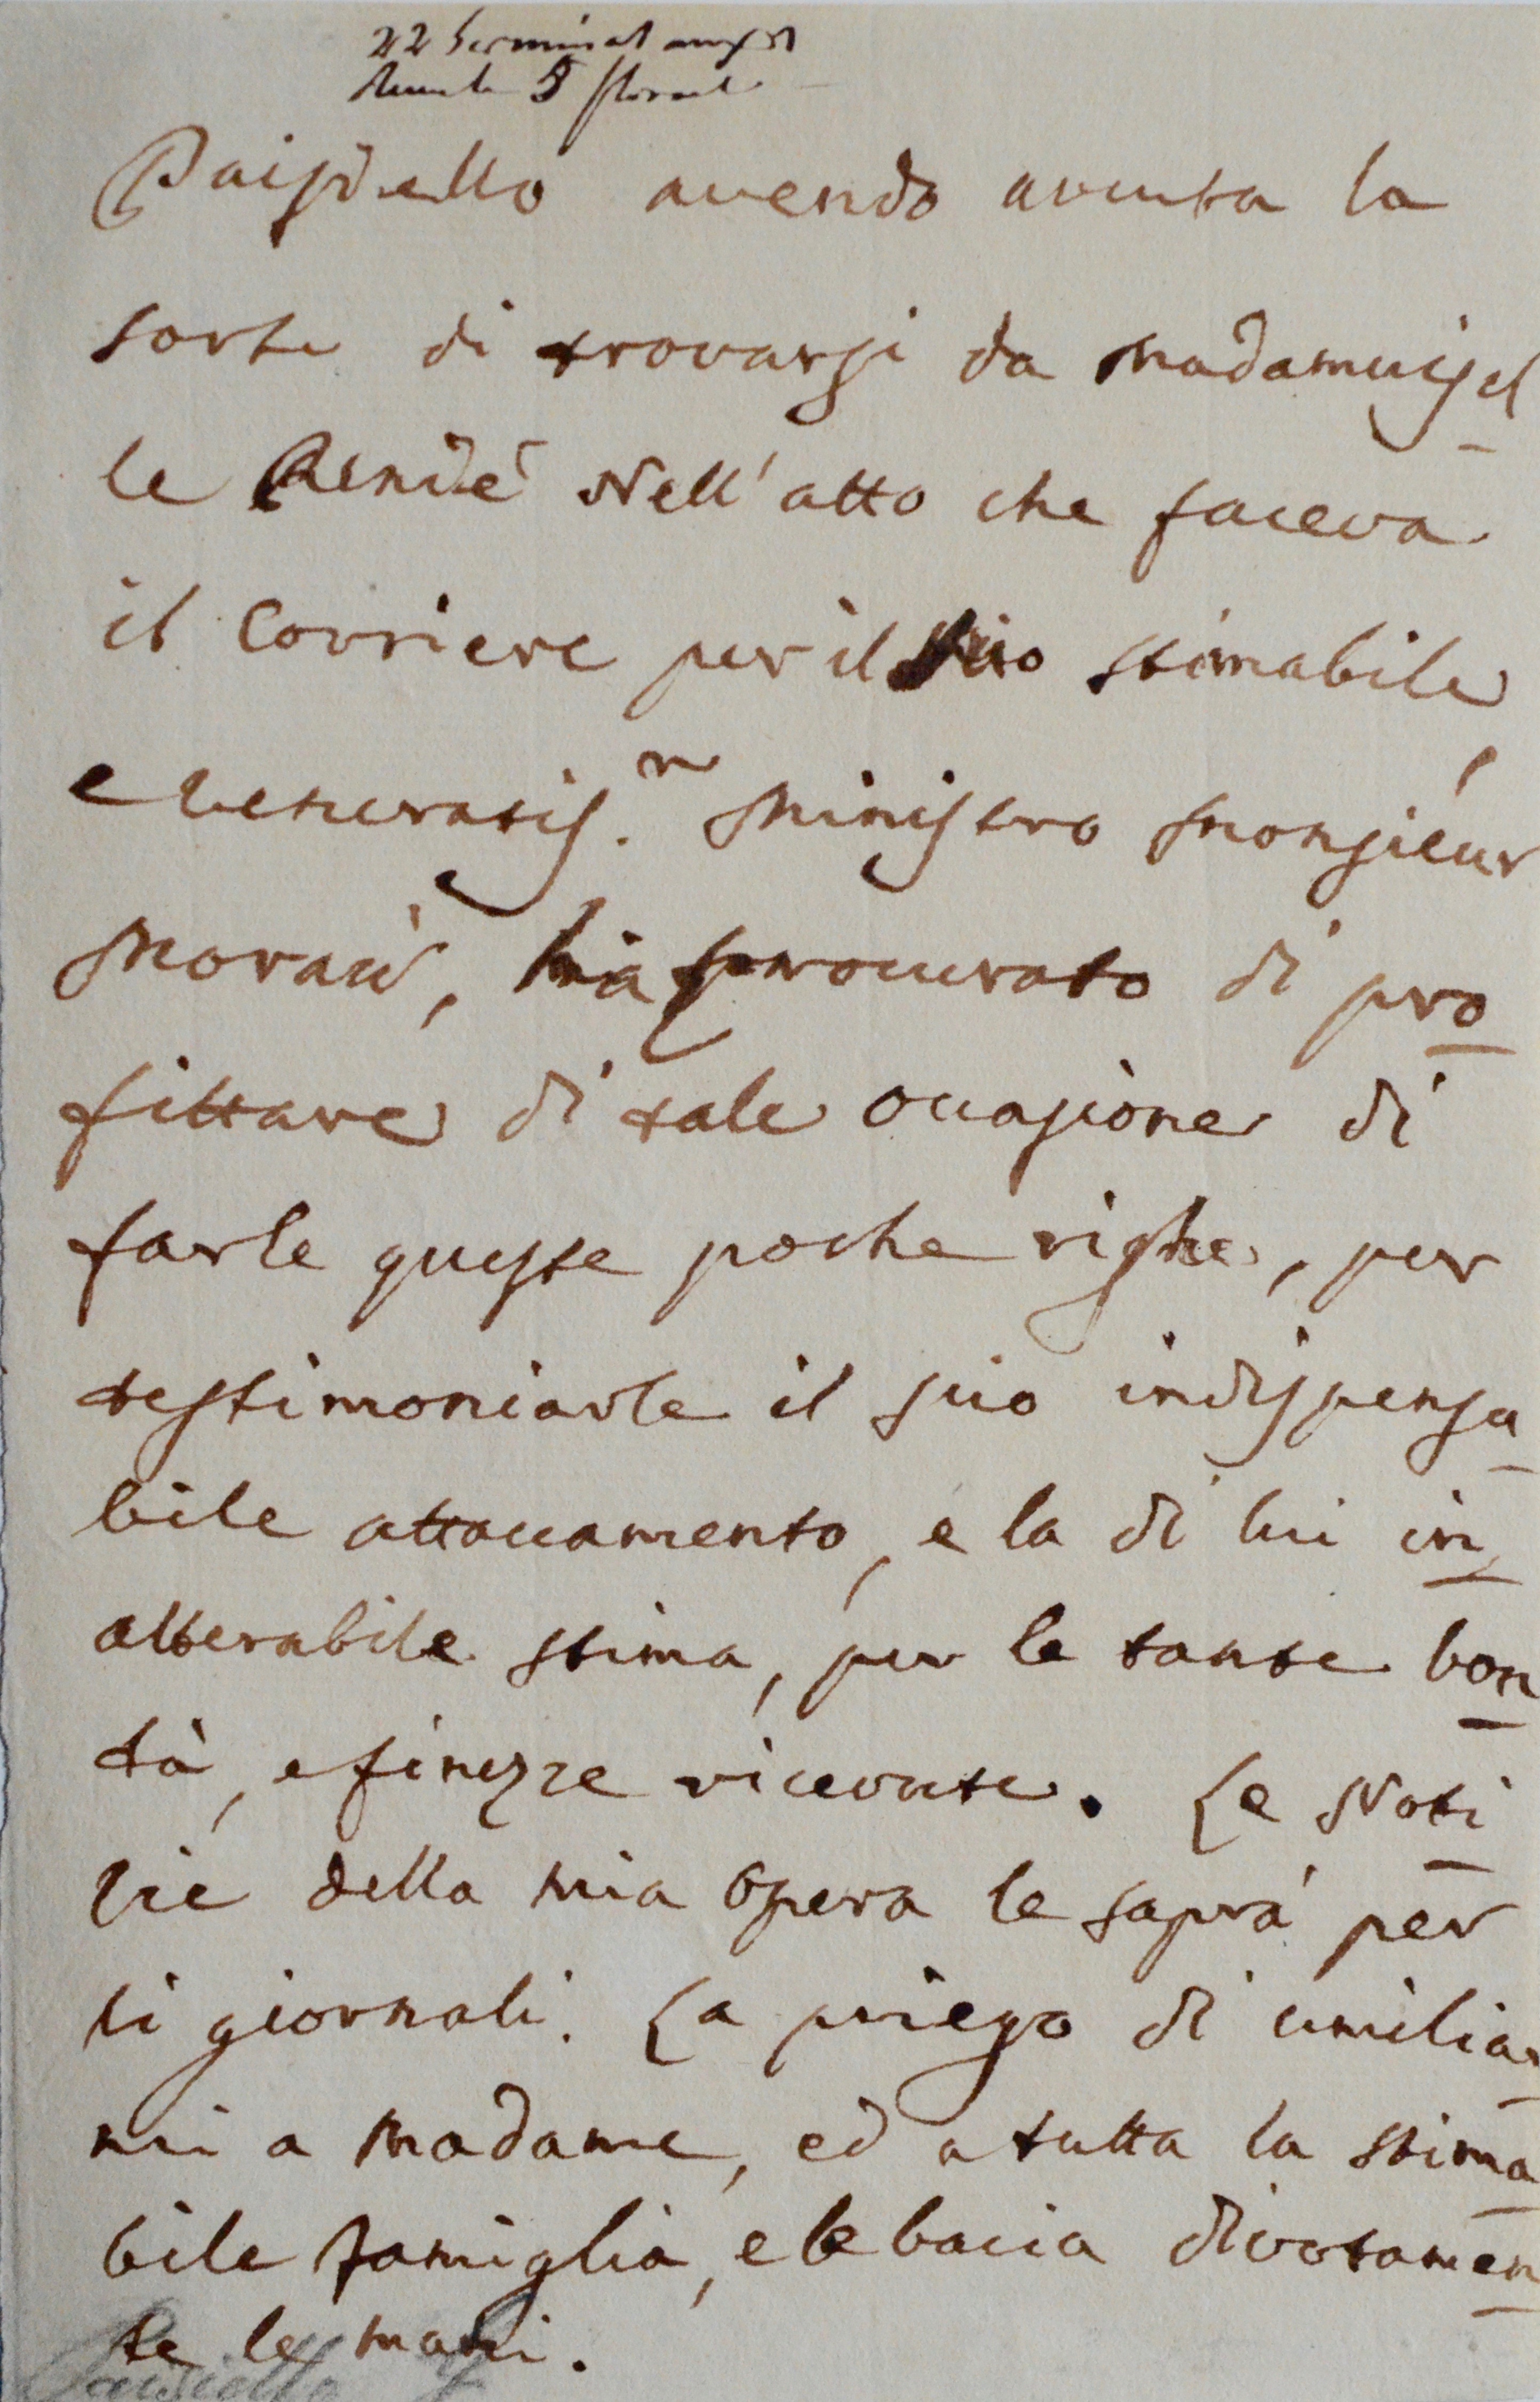 22 Germinal an XI
5 floreal
Paisiello avendo avuta la
sorte di trovarsi da Madamuisel
le Renité Nell'atto che faceva
il Corriere per il suo stimabile
e veneratis.mo Ministro Monsieur
Moraù, ha procurato di pro
fittare di tale occasione di
farle queste poche righe, per
testimoniarle il suo indispensa
bile attaccamento, e la di lui in
alterabile stima, per le tante bon
tà, e finezze ricevute. Le Noti
zie della mia opera le saprà per
li giornali. La priego di umiliar
mi a Madame, ed a tutta la stima
bile famiglia, e le bacia divotamen
te le mani.
Paisiello